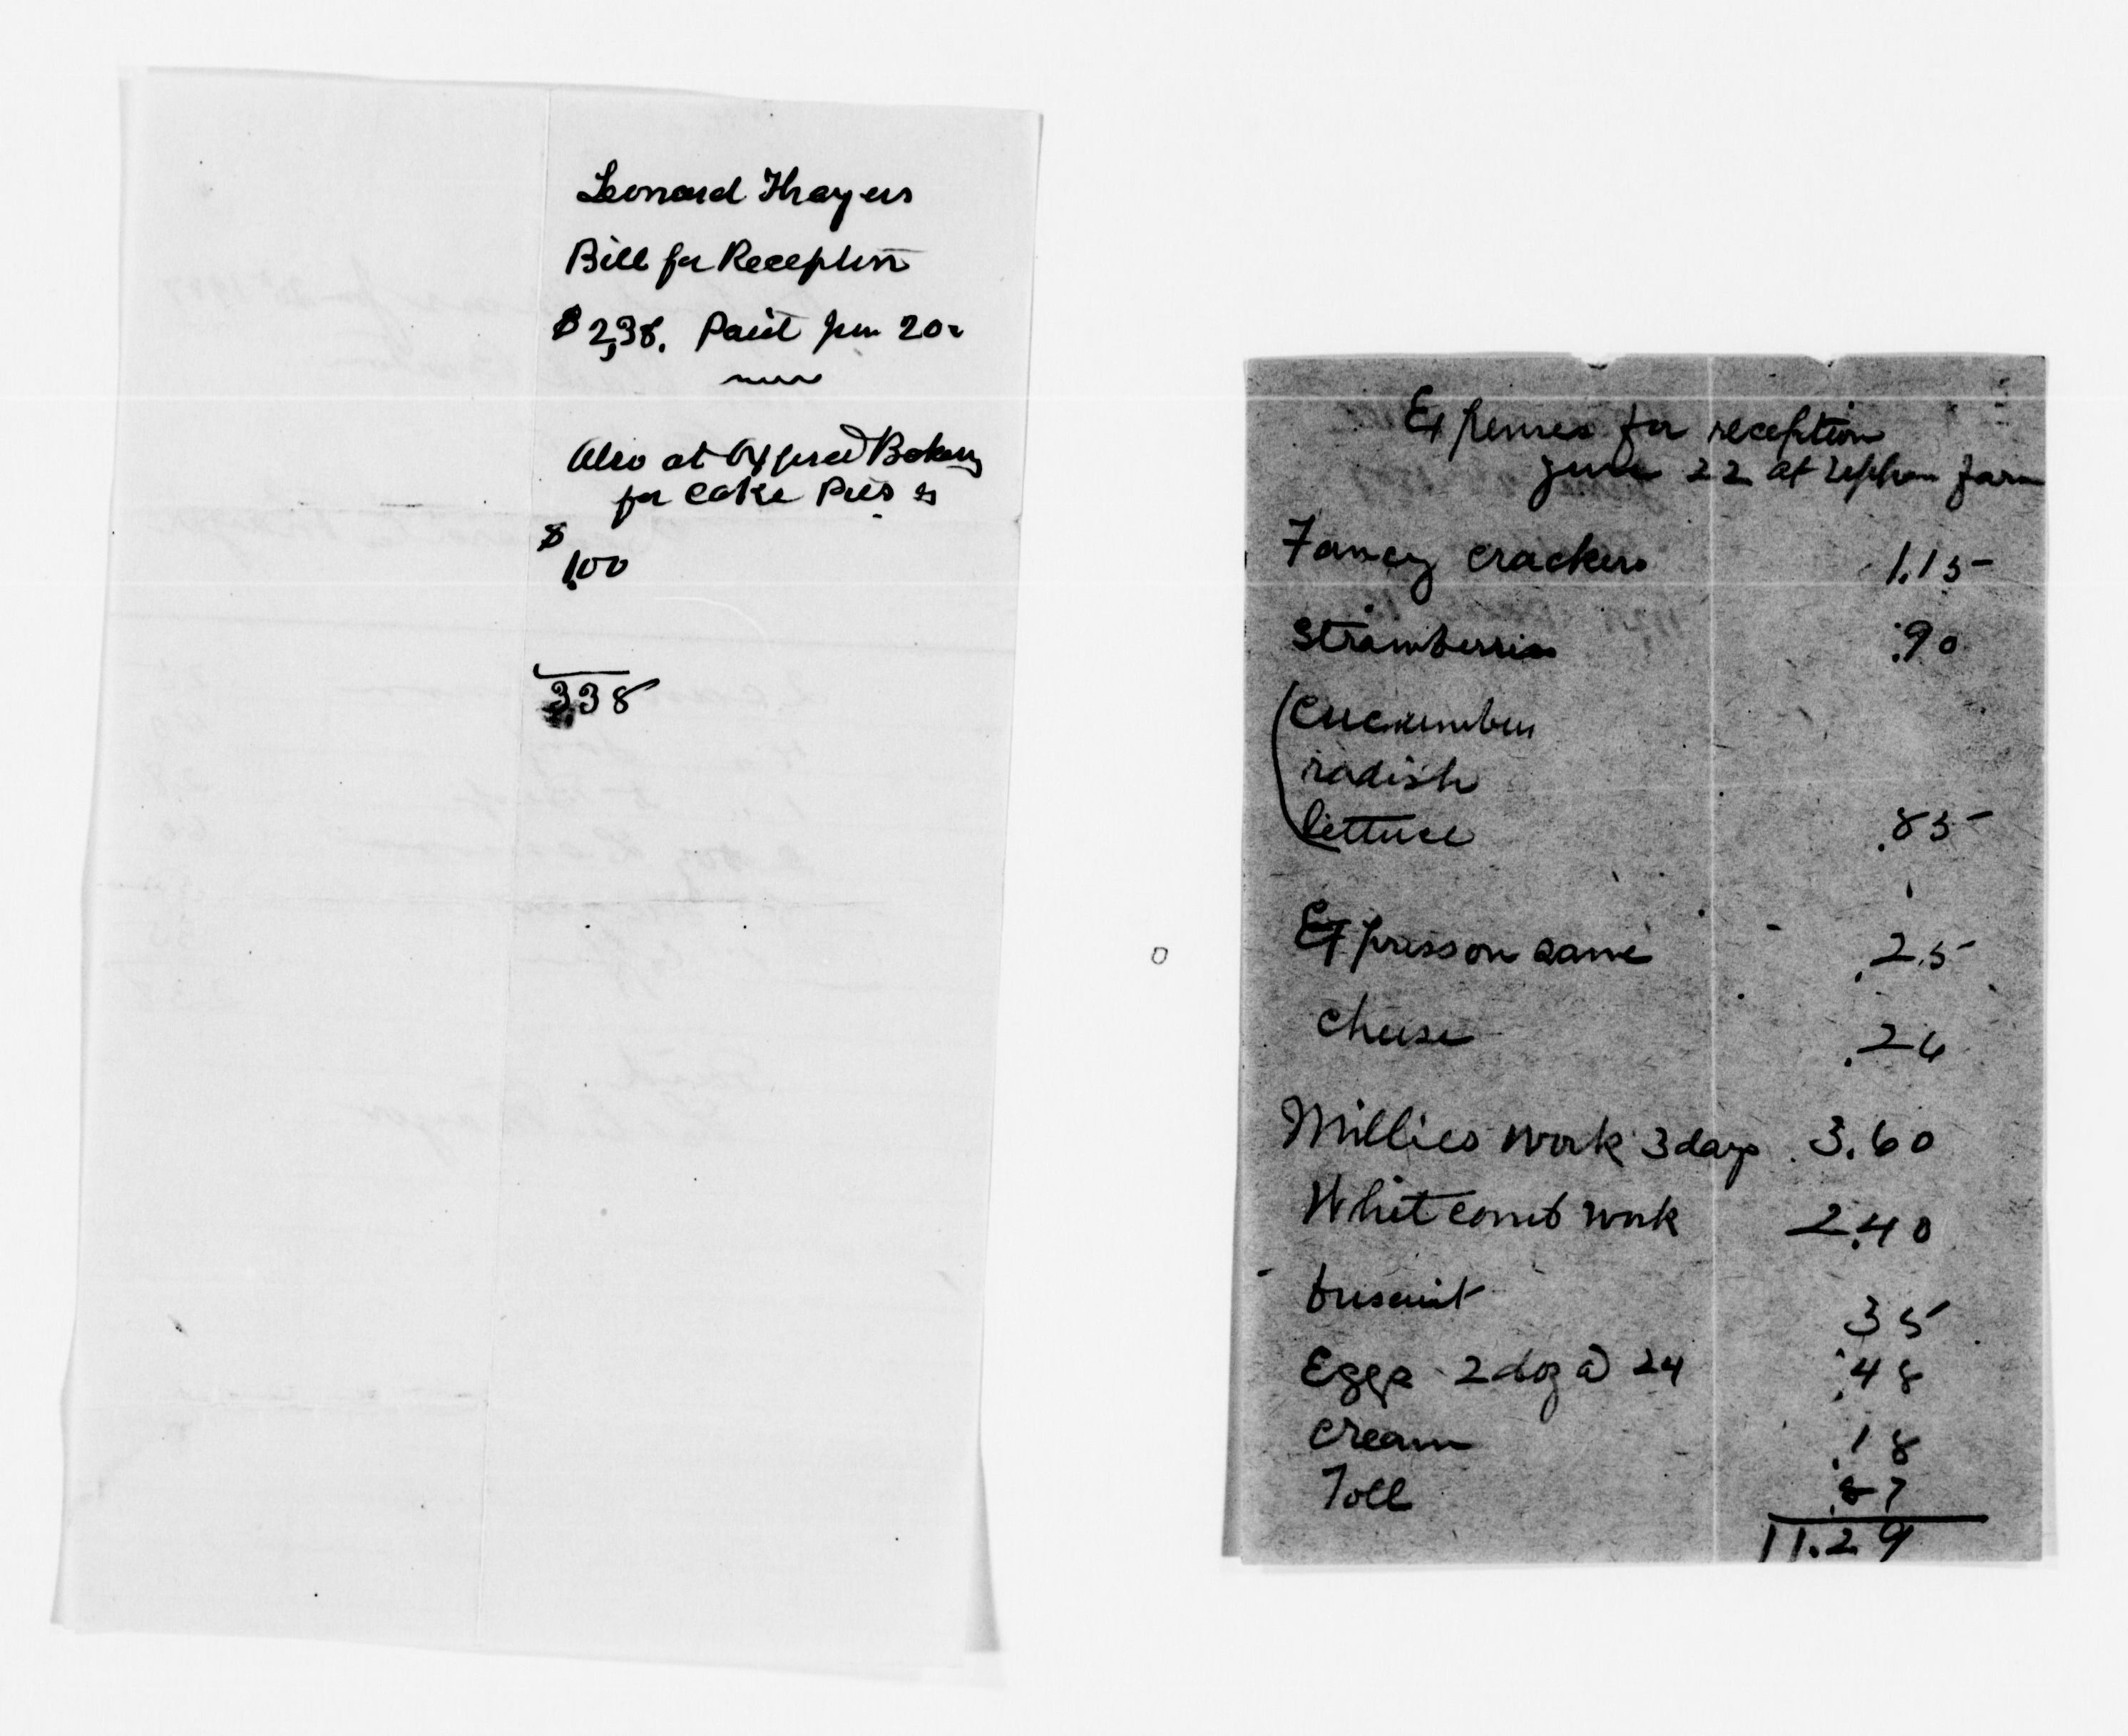 Leonard Thayers
Bill for Reception
$2,38. Paid Jun 20
Also at Oxford Bakery
for Cake Pies &
$
1,00
3,38
Expenses for reception
June 22 at farm
Fancy crackers 1.15
Strawberries .90
Cucumber
radish
lettuce .85
Express on same .25
Cheese .26
Millies work 3 days 3.60
Whitcomb work 2.40
biscuit 35
Eggs 2 doz @ 24 .48
Cream .18
Toll .87
11.29